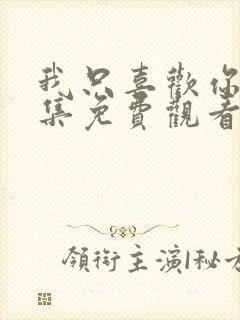 我只喜歡你
集免費觀看
領銜主演|秘方